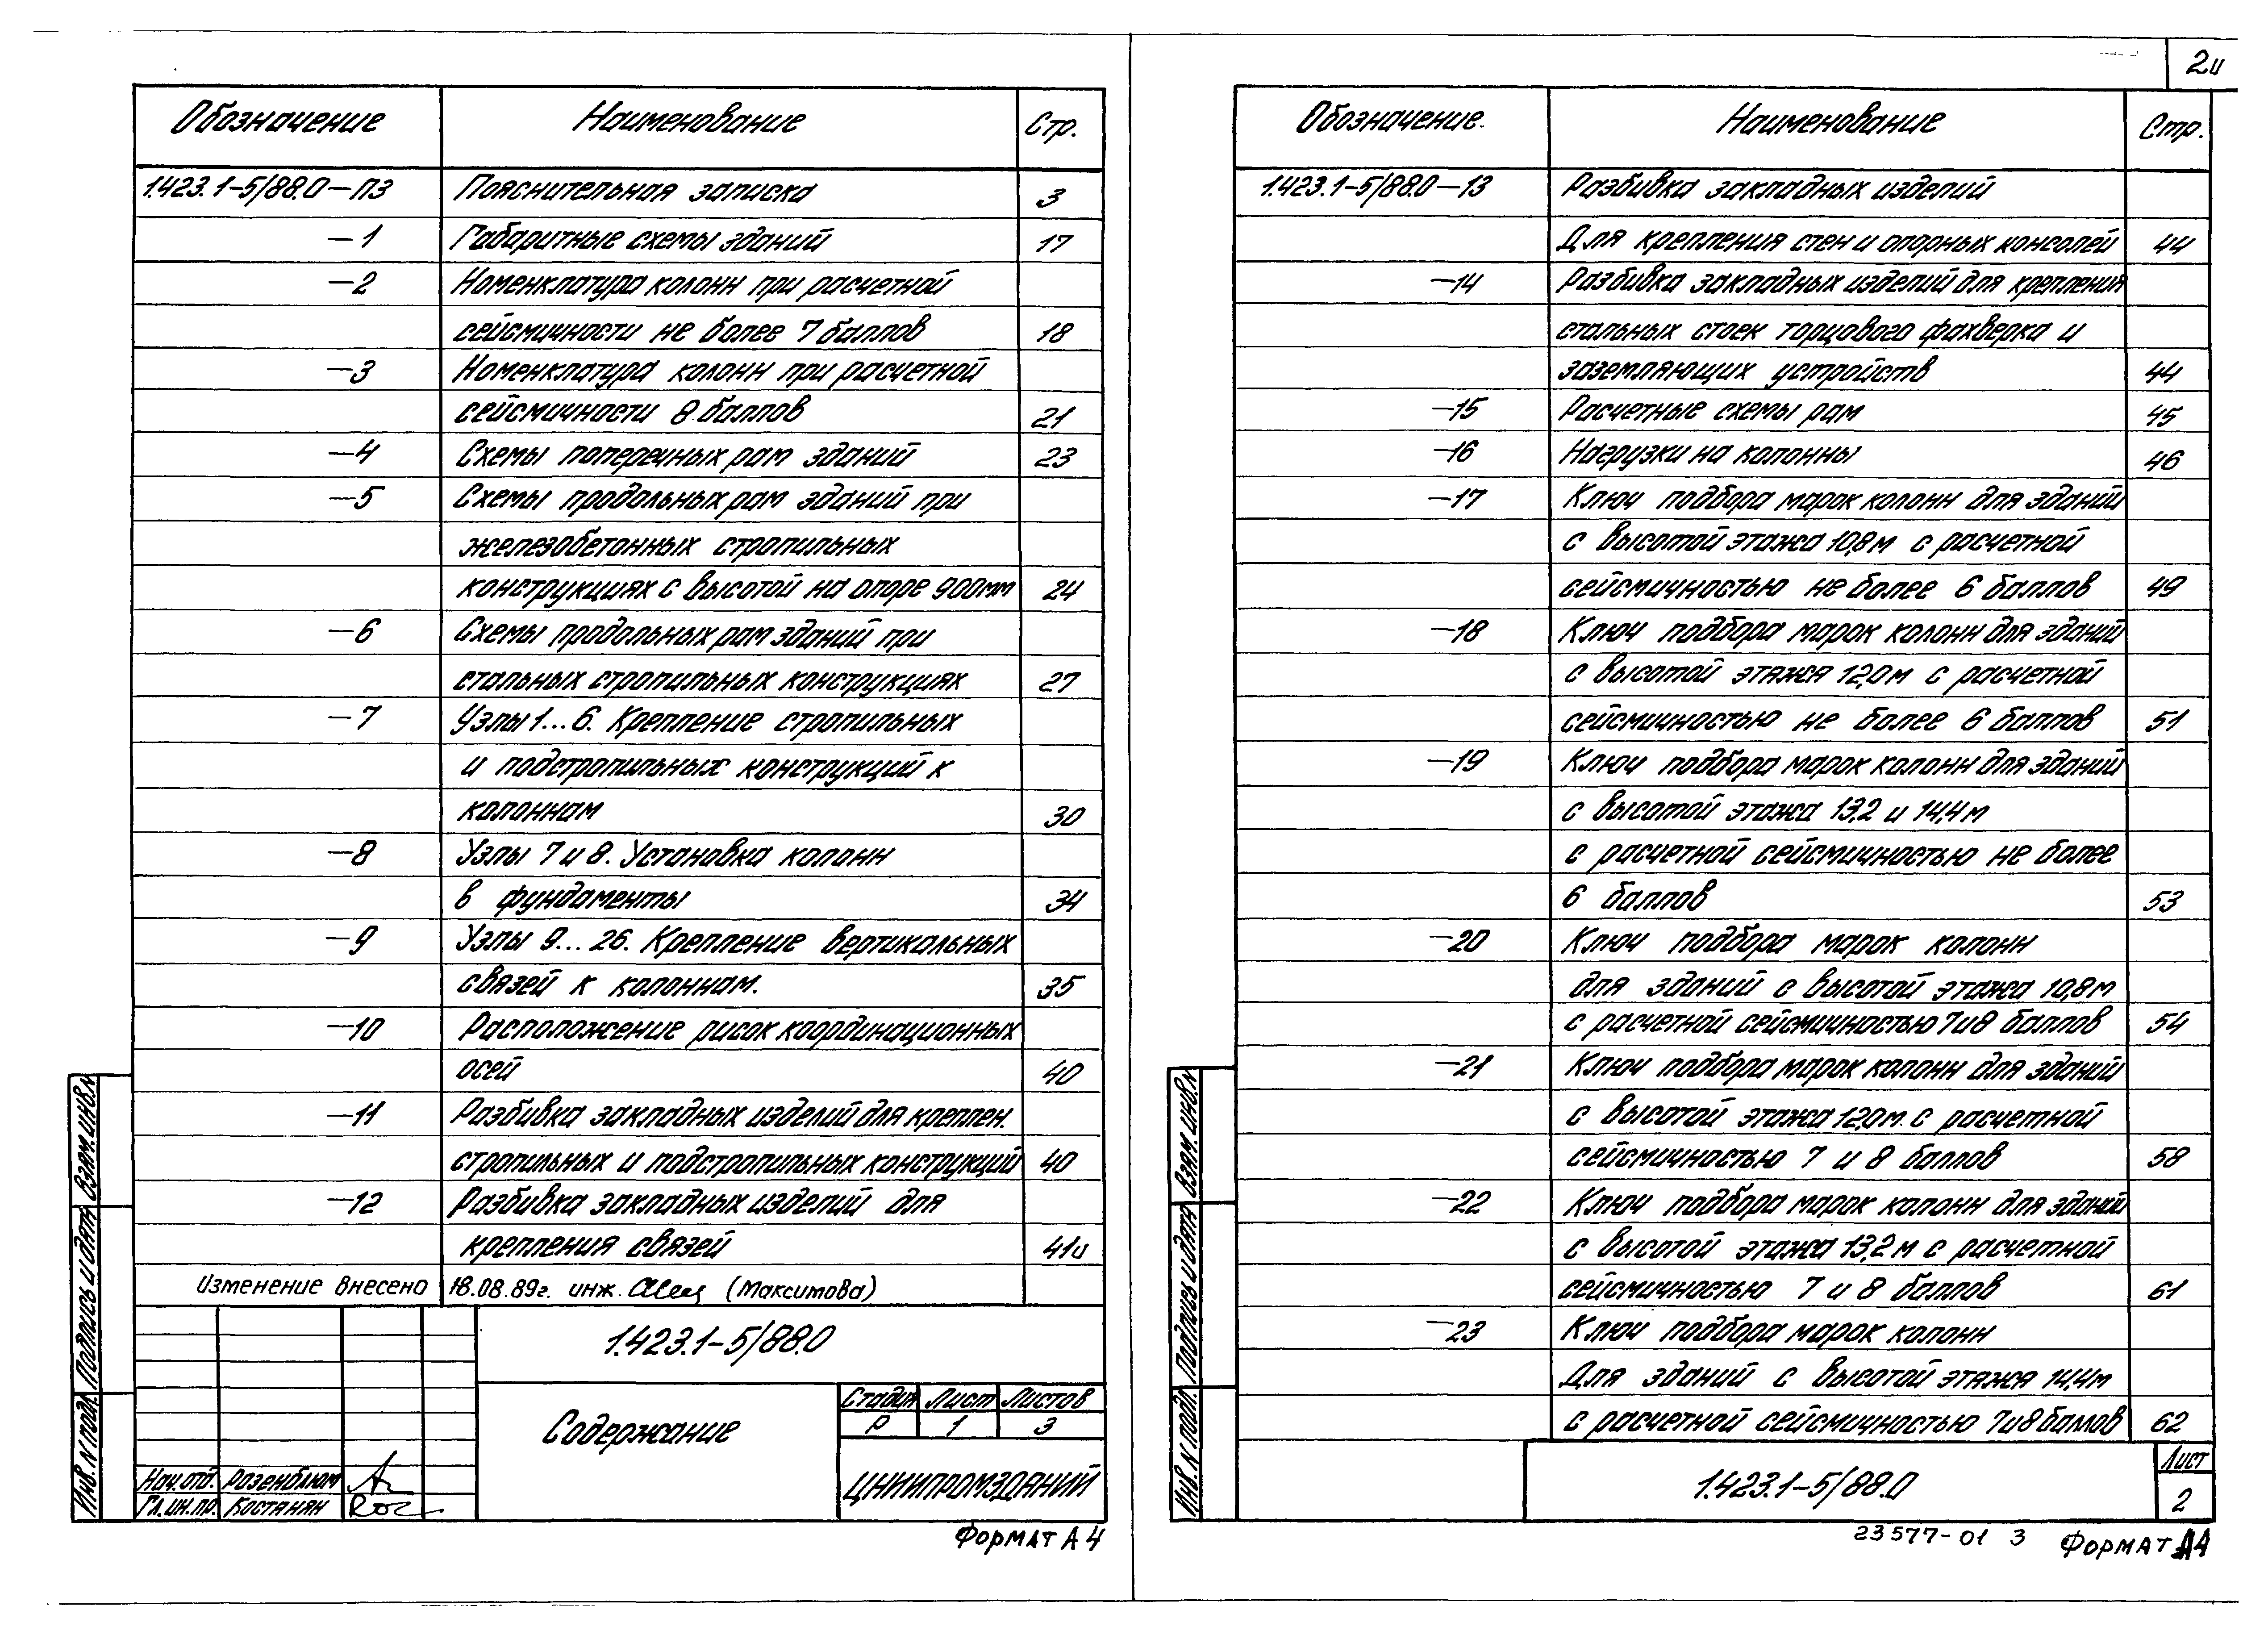 2и
Обозначение Наименование Стр.
1.423.1-5/88.0-ПЗ Пояснительная записка 3
-1 Габаритные схемы зданий 17
-2 Номенклатура колонн при расчетной
сейсмичности не более 7 баллов 18
-3 Номенклатура колонн при расчетной
сейсмичности 8 баллов 21
-4 Схемы поперечных рам зданий 23
-5 Схемы продольных рам зданий при
железобетонных стропильных
конструкциях с высотой на опоре 900мм 24
-6 Схемы продольных рам зданий при
стальных стропильных конструкциях 27
-7 Узлы 1...6. Крепление стропильных
и подстропильных конструкций к
колоннам 30
-8 Узлы 7 и 8. Установка колонн
в фундаменты 34
-9 Узлы 9...26. Крепление вертикальных
связей к колоннам. 35
-10 Расположение рисок координационных
осей 40
-11 Разбивка закладных изделий для креплен.
стропильных и подстропильных конструкций 40
-12 Разбивка закладных изделий для
крепления связей 41и
Изменение внесено 18.08.89г. инж. (Максимова)
1.423.1-5/88.0
Содержание
Стадия Лист Листов
Р 1 3
ЦНИИПРОМЗДАНИЙ
Нач.отд. Розенблюм
Гл.ин.пр. Костанян
Инв. N подл. Подпись и дата Взам. инв. N
Формат А4
Обозначение. Наименование Стр.
1.423.1-5/88.0-13 Разбивка закладных изделий
Для крепления стен и опорных консолей 44
-14 Разбивка закладных изделий для крепления
стальных стоек торцового фахверка и
заземляющих устройств 44
-15 Расчетные схемы рам 45
-16 Нагрузки на колонны 46
-17 Ключ подбора марок колонн для зданий
с высотой этажа 10,8м с расчетной
сейсмичностью не более 6 баллов 49
-18 Ключ подбора марок колонн для зданий
с высотой этажа 12,0м с расчетной
сейсмичностью не более 6 баллов 51
-19 Ключ подбора марок колонн для зданий
с высотой этажа 13,2 и 14,4м
с расчетной сейсмичностью не более
6 баллов 53
-20 Ключ подбора марок колонн
для зданий с высотой этажа 10,8м
с расчетной сейсмичностью 7 и 8 баллов 54
-21 Ключ подбора марок колонн для зданий
с высотой этажа 12,0м. с расчетной
сейсмичностью 7 и 8 баллов 58
-22 Ключ подбора марок колонн для зданий
с высотой этажа 13,2м с расчетной
сейсмичностью 7 и 8 баллов 61
-23 Ключ подбора марок колонн
Для зданий с высотой этажа 14,4м
с расчетной сейсмичностью 7 и 8 баллов 62
1.423.1-5/88.0
Лист
2
Инв. N подл. Подпись и дата Взам. инв. N
23577-01 3 Формат А4